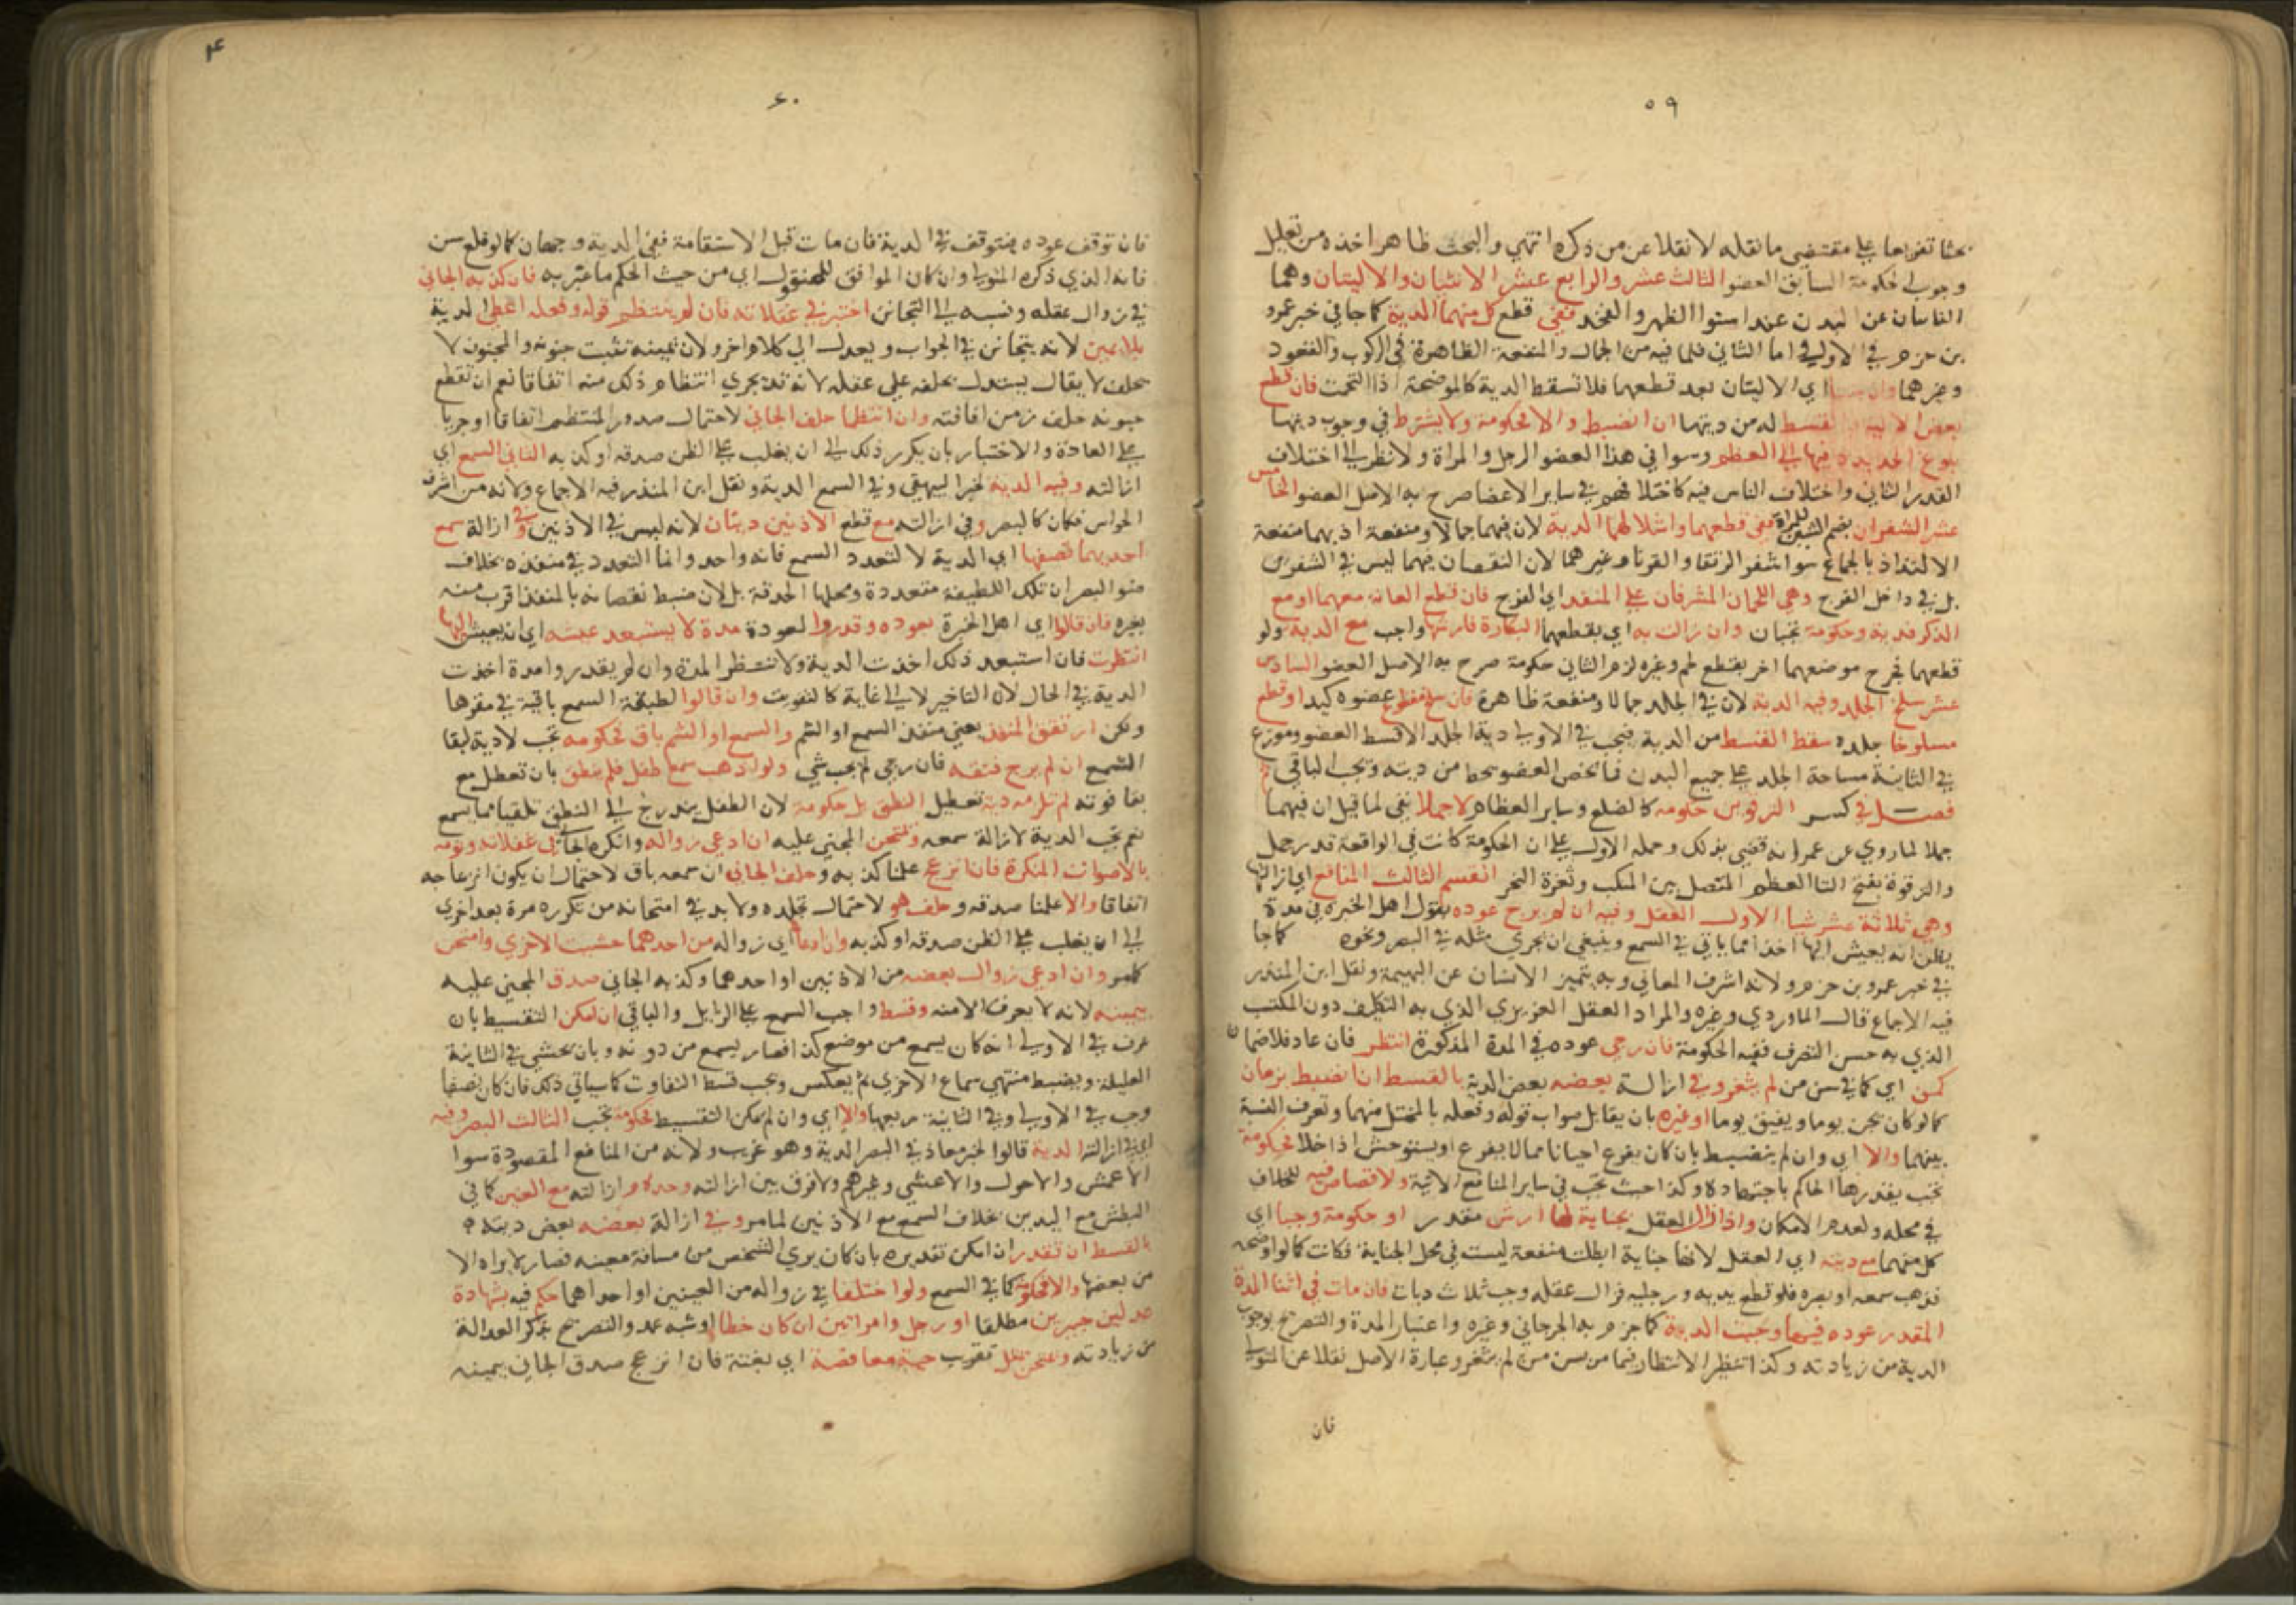 ٥٩
بحثا تفريعا على مقتضى ما نقله لا نقلا عن من ذكره انتهى والبحث ظاهر اخذه من تعليل
وجوب الحكومة السابق العضو الثالث عشر والرابع عشر الانثيان والاليتان وهما
الناتيان عن البدن عند استوا الظهر والفخذ ففى قطع كل منهما الدية كما جا في خبر عمرو
بن حزم في الاولى اما الثاني فلما فيه من الجمال والمنفعة الظاهرة فى الركوب والقعود
وغيرهما وان اي الاليتان بعد قطعهما فلا تسقط الدية كالموضحة اذا التحمت فان قطع
بعض الالية فالقسط له من ديتها ان انضبط والا فحكومة ولا يشترط في وجوب ديتها
بلوغ الحديدة فيها الى العظم وسوا في هذا العضو الرجل والمراة ولا نظر الى اختلاف
القدر الناتي واختلاف الناس فيه كاختلافهم في ساير الاعضا صرح به الاصل العضو الخامس
عشر الشفران بضم الشين للمراة ففي قطعهما واشلالهما الدية لان فيهما جمالا ومنفعة اذ بهما منفعة
الالتذاذ بالجماع سوا شفر الرتقا والقرنا وغيرهما لان النقصان فيهما ليس في الشفرين
بل في داخل الفرج وهي اللحمان المشرفان على المنفذ اي الفرج فان قطع العانة معهما او مع
الذكر فدية وحكومة تجبان وان زالت به اي بقطعهما البكارة فارشها واجب مع الدية ولو
قطعهما فجرح موضعهما اخر بقطع لحم وغيره لزم الثاني حكومة صرح به الاصل العضو السادس
عشر سلخ الجلد وفيه الدية لان في الجلد جمالا ومنفعة ظاهرة فان سلخ مقطوع عضوه كيد او قطع
مسلوخا جلده سقط القسط من الدية فتجب في الاولى دية الجلد الا قسط العضو وموزع
في الثانية مساحة الجلد على جميع البدن فما يخص العضو يحط من ديته ويجب الباقي
فصل في كسر الترقوتين حكومة كالضلع وساير العظام لا جملا نفى لما قيل ان فيهما
جملا لما روي عن عمر انه قضى بذلك وحمله الاول على ان الحكومة كانت في الواقعة قدر جمل
والترقوة بفتح التا العظم المتصل بين المنكب وثغرة النحر القسم الثالث المنافع اي ازالتها
وهي ثلاثة عشر شيا الاول العقل وفيه ان لم يرج عوده بقول اهل الخبرة في مدة
يظن انه يعيش اليها اخذا مما ياتي في السمع وينبغي ان يجري مثله في البصر ونحوه كما جا
في خبر عمرو بن حزم ولانه اشرف المعاني وبه يتميز الانسان عن البهيمة ونقل ابن المنذر
فيه الاجماع قال الماوردي وغيره والمراد العقل الغريزي الذي به التكليف دون المكتسب
الذي به حسن التصرف ففيه الحكومة فان رجي عوده في المدة المذكورة انتظر فان عاد فلا ضمان
كسن اي كما في سن من لم يثغر وفي ازالة بعضه بعض الدية بالقسط ان انضبط بزمان
كما لو كان يجن يوما ويفيق يوما او غيره بان يقابل صواب قوله وفعله بالمختل منهما وتعرف النسبة
بينهما والا اي وان لم ينضبط بان كان يفزع احيانا مما لا يفزع او يستوحش اذا خلا فحكومة
تجب يقدرها الحاكم باجتهاده وكذا حيث تجب في ساير المنافع الاتية ولا قصاص فيه للخلاف
في محله ولعدم الامكان واذا زال العقل بجناية لها ارش مقدر او حكومة وجبا اي
كل منهما مع ديته اي العقل لانها جناية ابطلت منفعة ليست في محل الجناية فكانت كما لو اوضحه
فذهب سمعه او بصره فلو قطع يديه ورجليه فزال عقله وجب ثلاث ديات فان مات في اثنا المدة
المقدر عوده فيها وجبت الدية كما جزم به الجرجاني وغيره واعتبار المدة والتصريح بوجوب
الدية من زيادته وكذا تنظير الانتظار فيما مر بسن من لم يثغر وعبارة الاصل نقلا عن المتولي
فان
٤
٦٠
فان توقف عوده فيتوقف في الدية فان مات قبل الاستقامة ففي الدية وجهان كما لو قلع سن
فانه الذي ذكره المتولي وان كان الموافق للمنقول اي من حيث الحكم ما عبر به فان كذبه الجاني
في زوال عقله ونسبه الى التجانن اختبر في غفلاته فان لم ينتظم قوله وفعله اعطي الدية
بلا يمين لانه يتجانن في الجواب ويعدل الى كلام اخر ولان يمينه تثبت جنونه والمجنون لا
يحلف لا يقال يستدل بحلفه على عقله لانه قد يجري انتظام ذلك منه اتفاقا نعم ان تقطع
جنونه حلف زمن افاقته وان انتظما حلف الجاني لاحتمال صدور المنتظم اتفاقا او جريا
على العادة والاختبار بان يكرر ذلك الى ان يغلب على الظن صدقه او كذبه الثاني السمع اي
ازالته وفيه الدية لخبر البيهقي وفي السمع الدية ونقل ابن المنذر فيه الاجماع ولانه من اشرف
الحواس فكان كالبصر وفي ازالته مع قطع الاذنين ديتان لانه ليس في الاذنين وفي ازالة سمع
احديهما نصفها اي الدية لا لتعدد السمع فانه واحد وانما التعدد في منفذه بخلاف
ضو البصر ان تلك اللطيفة متعددة ومحلها الحدقة بل لان ضبط نقصانه بالمنفذ اقرب منه
بغيره فان قالوا اي اهل الخبرة بعوده وقدروا لعوده مدة لا يستبعد عيشه اي انه يعيش اليها
انتظرت فان استبعد ذلك اخذت الدية ولا تنتظر المدة وان لم يقدروا مدة اخذت
الدية في الحال لان التاخير لا الى غاية كالتفويت وان قالوا لطيفة السمع باقية في مقرها
ولكن ارتتق المنفذ يعني منفذ السمع او الشم والسمع او الشم باق فحكومة تجب لا دية لبقا
السمع ان لم يرج فتقه فان رجي لم يجب شي ولو اذهب سمع طفل فلم ينطق بان تعطل مع
بقا قوته لم تلزمه دية تعطيل النطق بل حكومة لان الطفل يتدرج الى النطق تلقيا مما يسمع
نعم تجب الدية لازالة سمعه ويمتحن المجني عليه ان ادعى زواله وانكره الجاني في غفلاته ونومه
بالاصوات المنكرة فان انزعج علمنا كذبه وحلف الجاني ان سمعه باق لاحتمال ان يكون انزعاجه
اتفاقا والا علمنا صدقه وحلف هو لاحتمال تجلده ولا بد في امتحانه من تكرره مرة بعد اخرى
الى ان يغلب على الظن صدقه او كذبه وان ادعا اي زواله من احدهما حشيت الاخرى وامتحن
كما مر وان ادعى زوال بعضه من الاذنين او احدهما وكذبه الجاني صدق المجني عليه
بيمينه لانه لا يعرف الا منه وقسط واجب السمع على الزايل والباقي ان امكن التقسيط بان
عرف في الاولى انه كان يسمع من موضع كذا فصار يسمع من دونه وبان يحشى في الثانية
العليلة ويضبط منتهى سماع الاخرى ثم يعكس ويجب قسط التفاوت كما سياتي ذلك فان كان نصفا
وجب في الاولى وفي الثانية ربعها والا اي وان لم يمكن التقسيط فحكومة تجب الثالث البصر وفيه
اي في ازالته الدية قالوا لخبر معاذ في البصر الدية وهو غريب ولانه من المنافع المقصودة سوا
الاعمش والاحول والاعشى وغيرهم ولا فرق بين ازالته وحده وازالته مع العينين كما في
البطش مع اليدين بخلاف السمع مع الاذنين لما مر وفي ازالة بعضه بعض ديته
بالقسط ان تقدر ان امكن تقديره بان كان يرى الشخص من مسافة معينة فصار لا يراه الا
من بعضها والا فحكومة كما في السمع ولو اختلفا في زواله من العينين او احداهما حكم فيه بشهادة
عدلين خبيرين مطلقا او رجل وامراتين ان كان خطا او شبه عمد والتصريح بذكر العدالة
من زيادته ويمتحن بمثل تقريب حية مغافصة اي بغتة فان انزعج صدق الجاني بيمينه